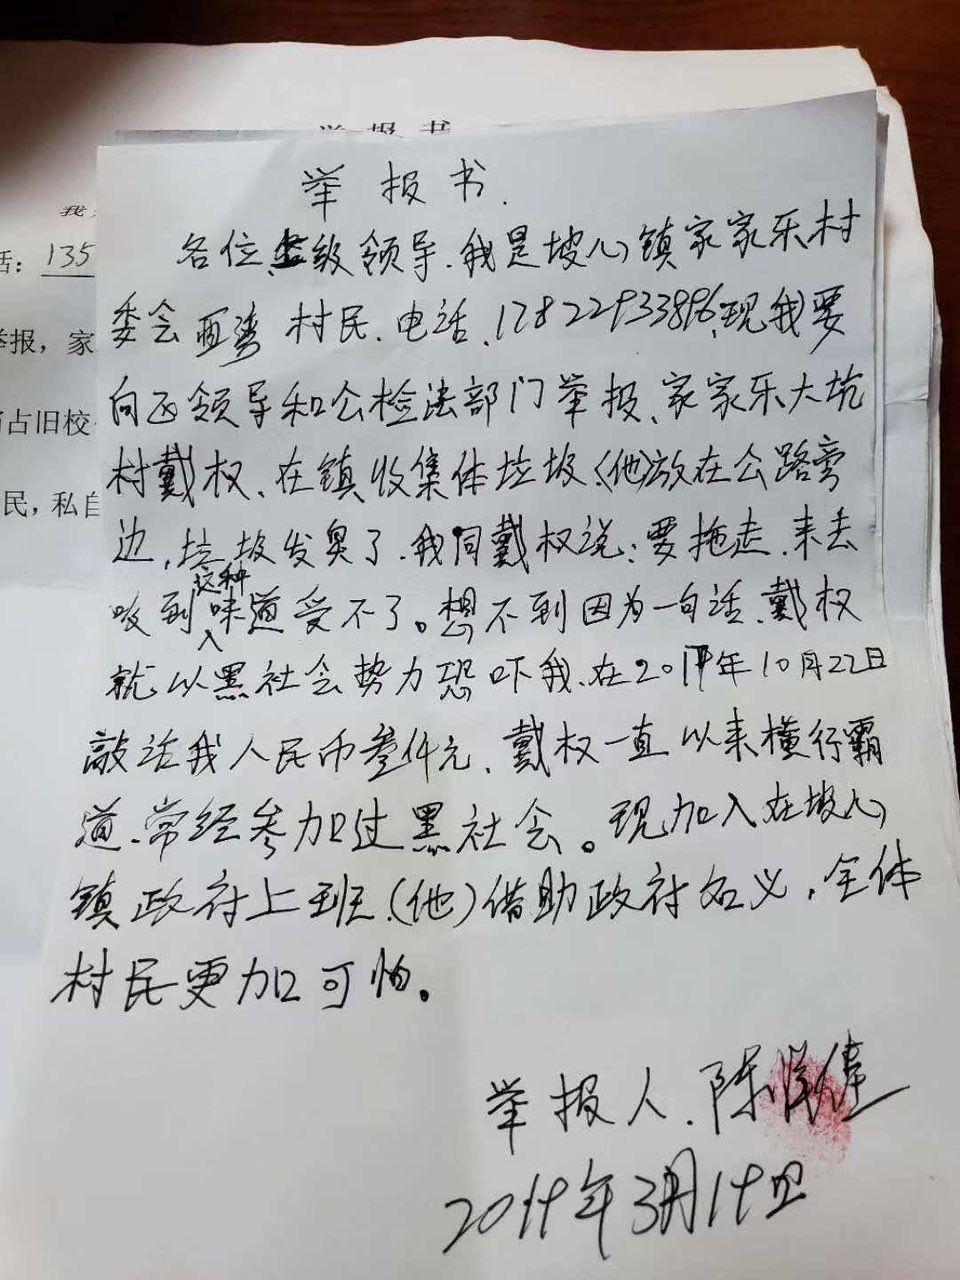 举报书
我
话：135
举报，家
占旧校
民，私自
举报书.
各位上级领导.我是坡心镇家家乐村
委会 村民.电话.17822933896.现我要
向 领导和公检法部门举报、家家乐大坑
村戴权、在镇收集体垃圾(他)放在公路旁
边,垃圾发臭了.我同戴权说:要拖走.来去
吸到这种味道受不了。想不到因为一句话.戴权
就以黑社会势力恐吓我.在201 年10月22日
敲诈我人民币叁仟元、戴权一直以来横行霸
道.常经参加过黑社会。现加入在坡心
镇政府上班.(他)借助政府名义,全体
村民更加可怕。
举报人.陈
2019年3月19日